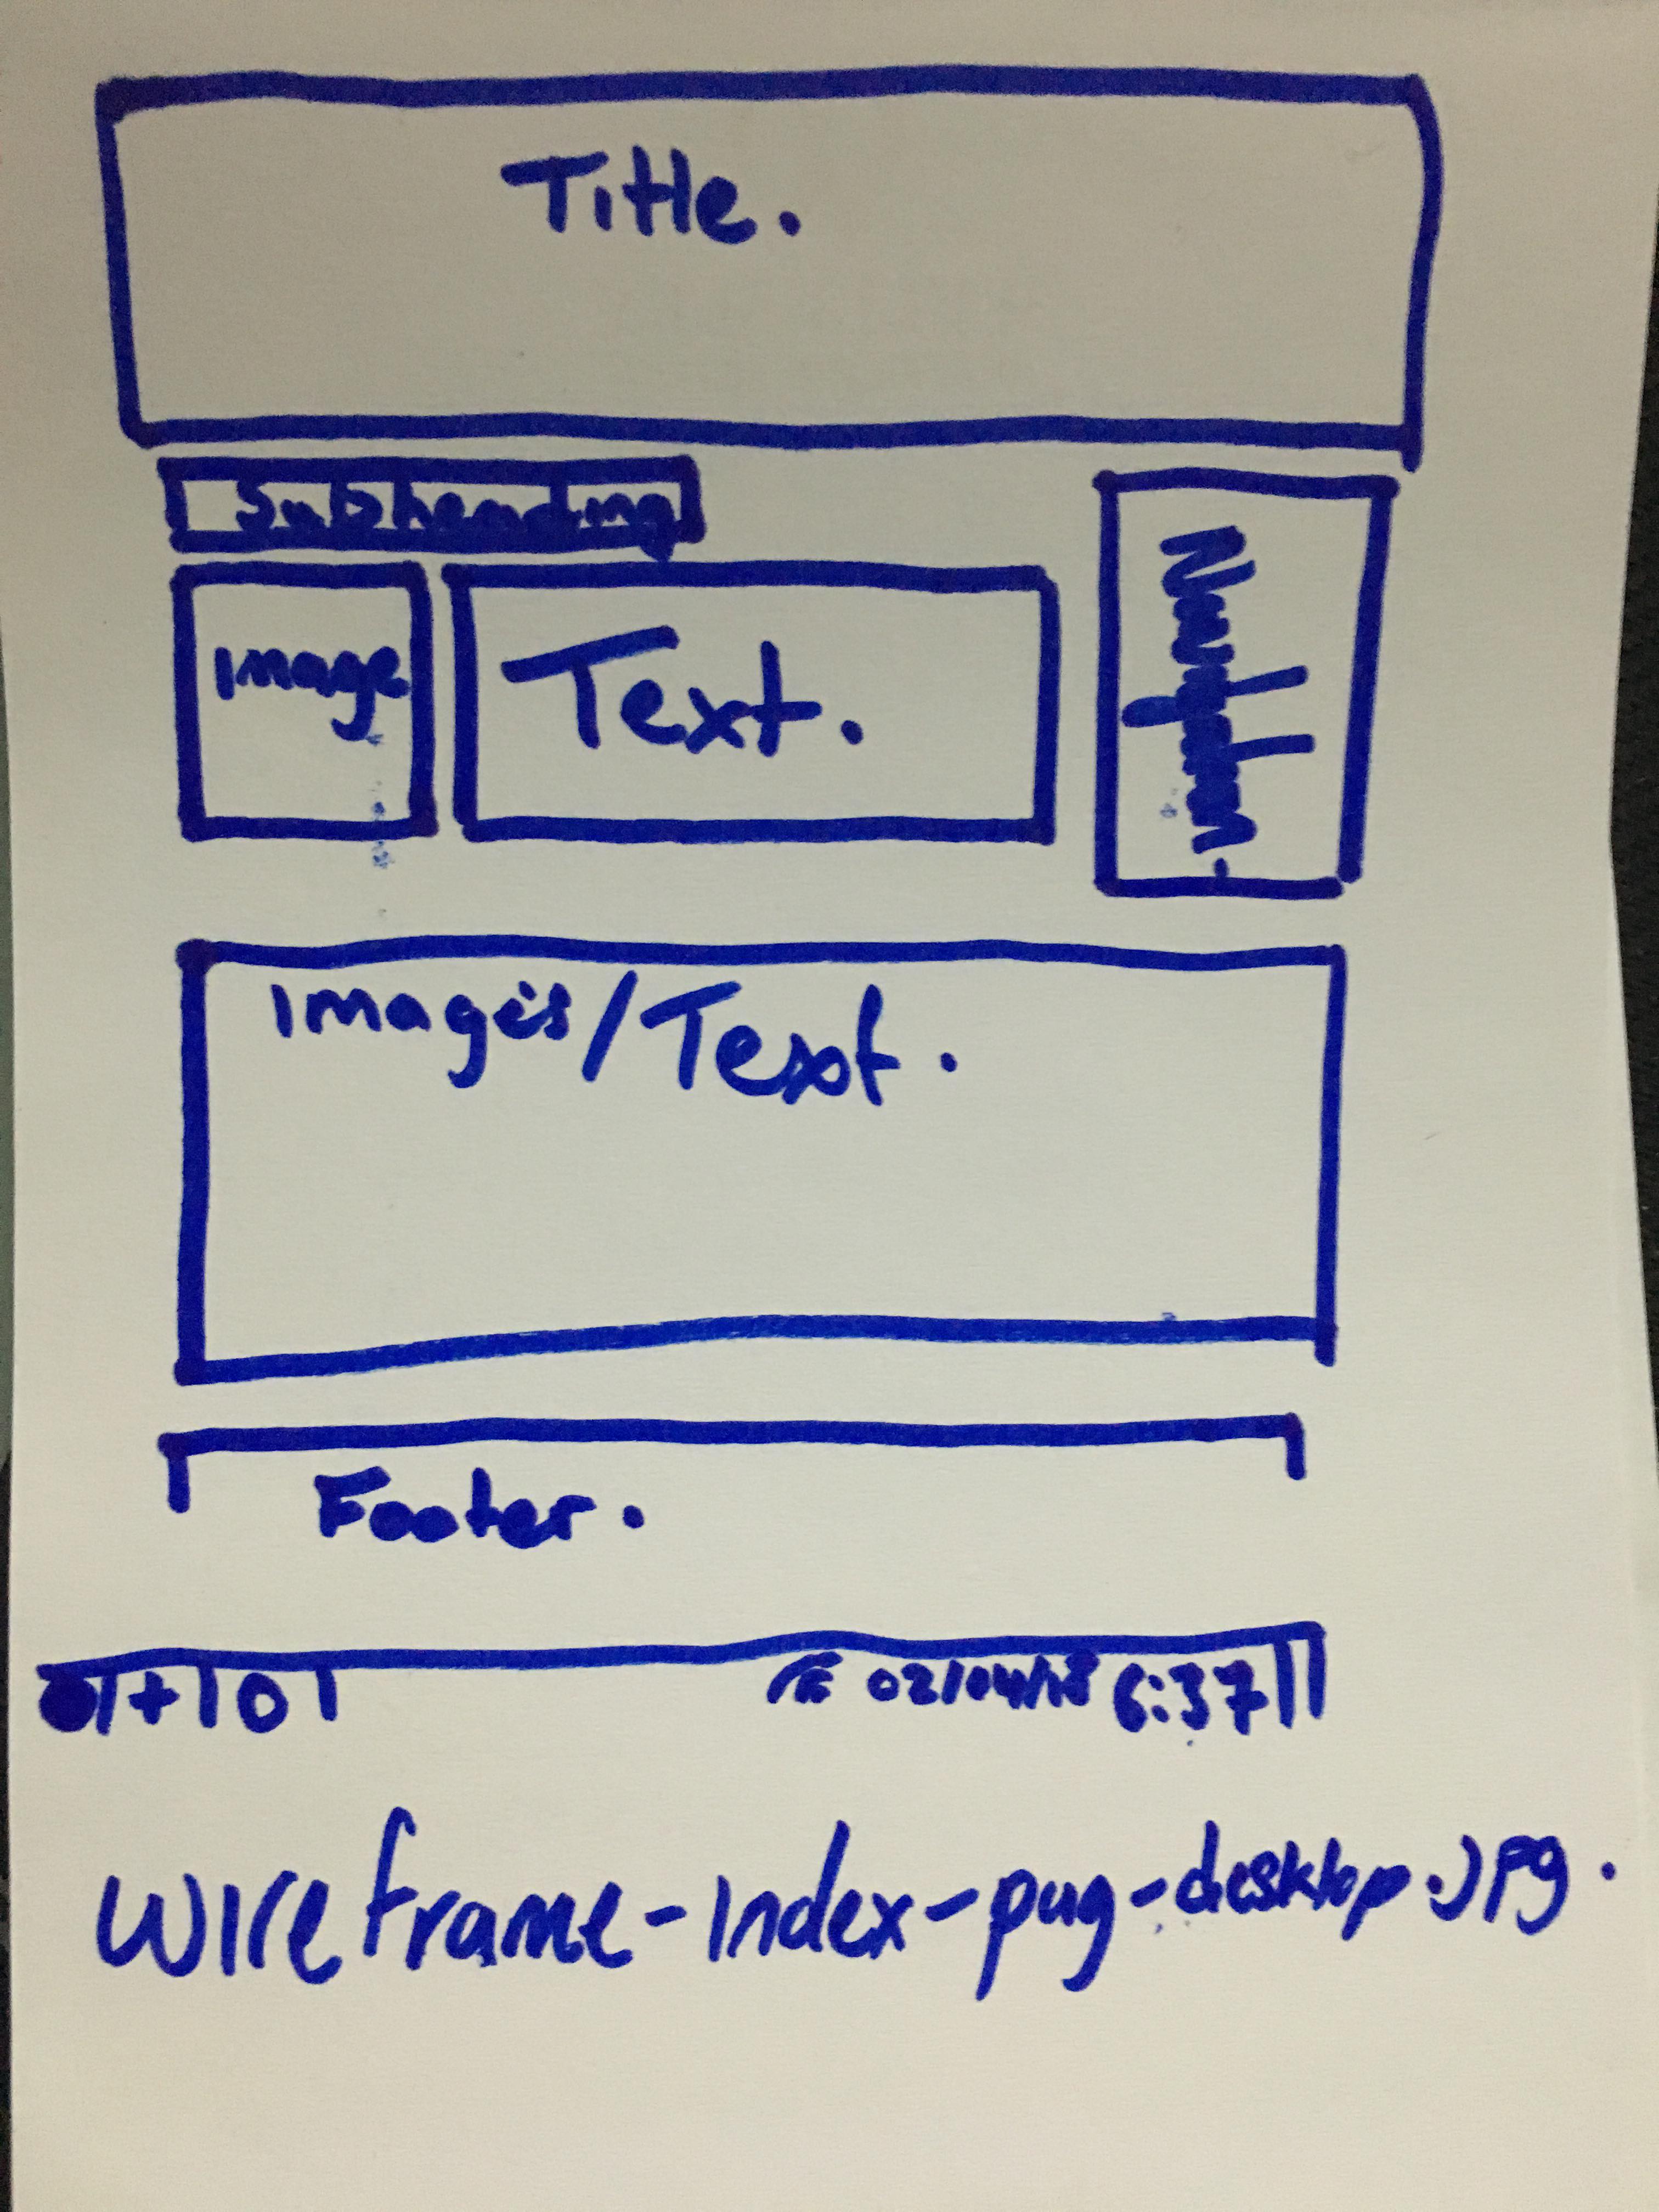 Title.
Subheading
Image
Text.
Navigation.
Images/Text.
Footer.
02/04/18 6:37
wireframe-index-pug-desktop.jpg.